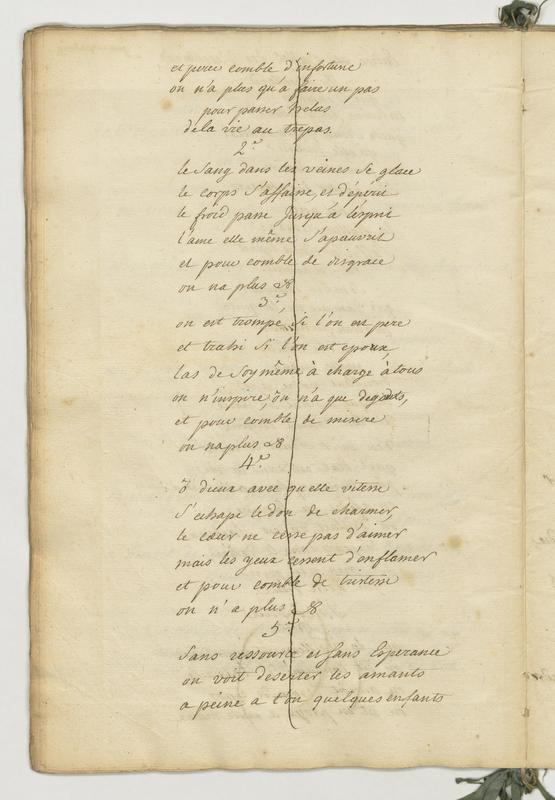 et pour comble d'infortune
on n'a plus qu'a faire un pas
pour passer helas
de la vie au trepas.
2e
le sang dans les veines se glace
le corps s'affaisse, et dépérit
le froid passe jusqu'à l'esprit
l'ame elle même s'apauvrit
et pour comble de disgrace
on n'a plus &
3e
on est trompé, si l'on est pere
et trahi si l'on est epoux,
las de soy même à charge à tous
on n'inspire, on n'a que degouts,
et pour comble de misere
on n'a plus &
4e
ô dieux avec quelle vitesse
s'echape le don de charmer,
le cœur ne cesse pas d'aimer
mais les yeux cessent d'enflamer
et pour comble de tristesse
on n'a plus &
5e
sans ressource et sans Esperance
on voit deserter les amants
a peine a t'on quelques enfants